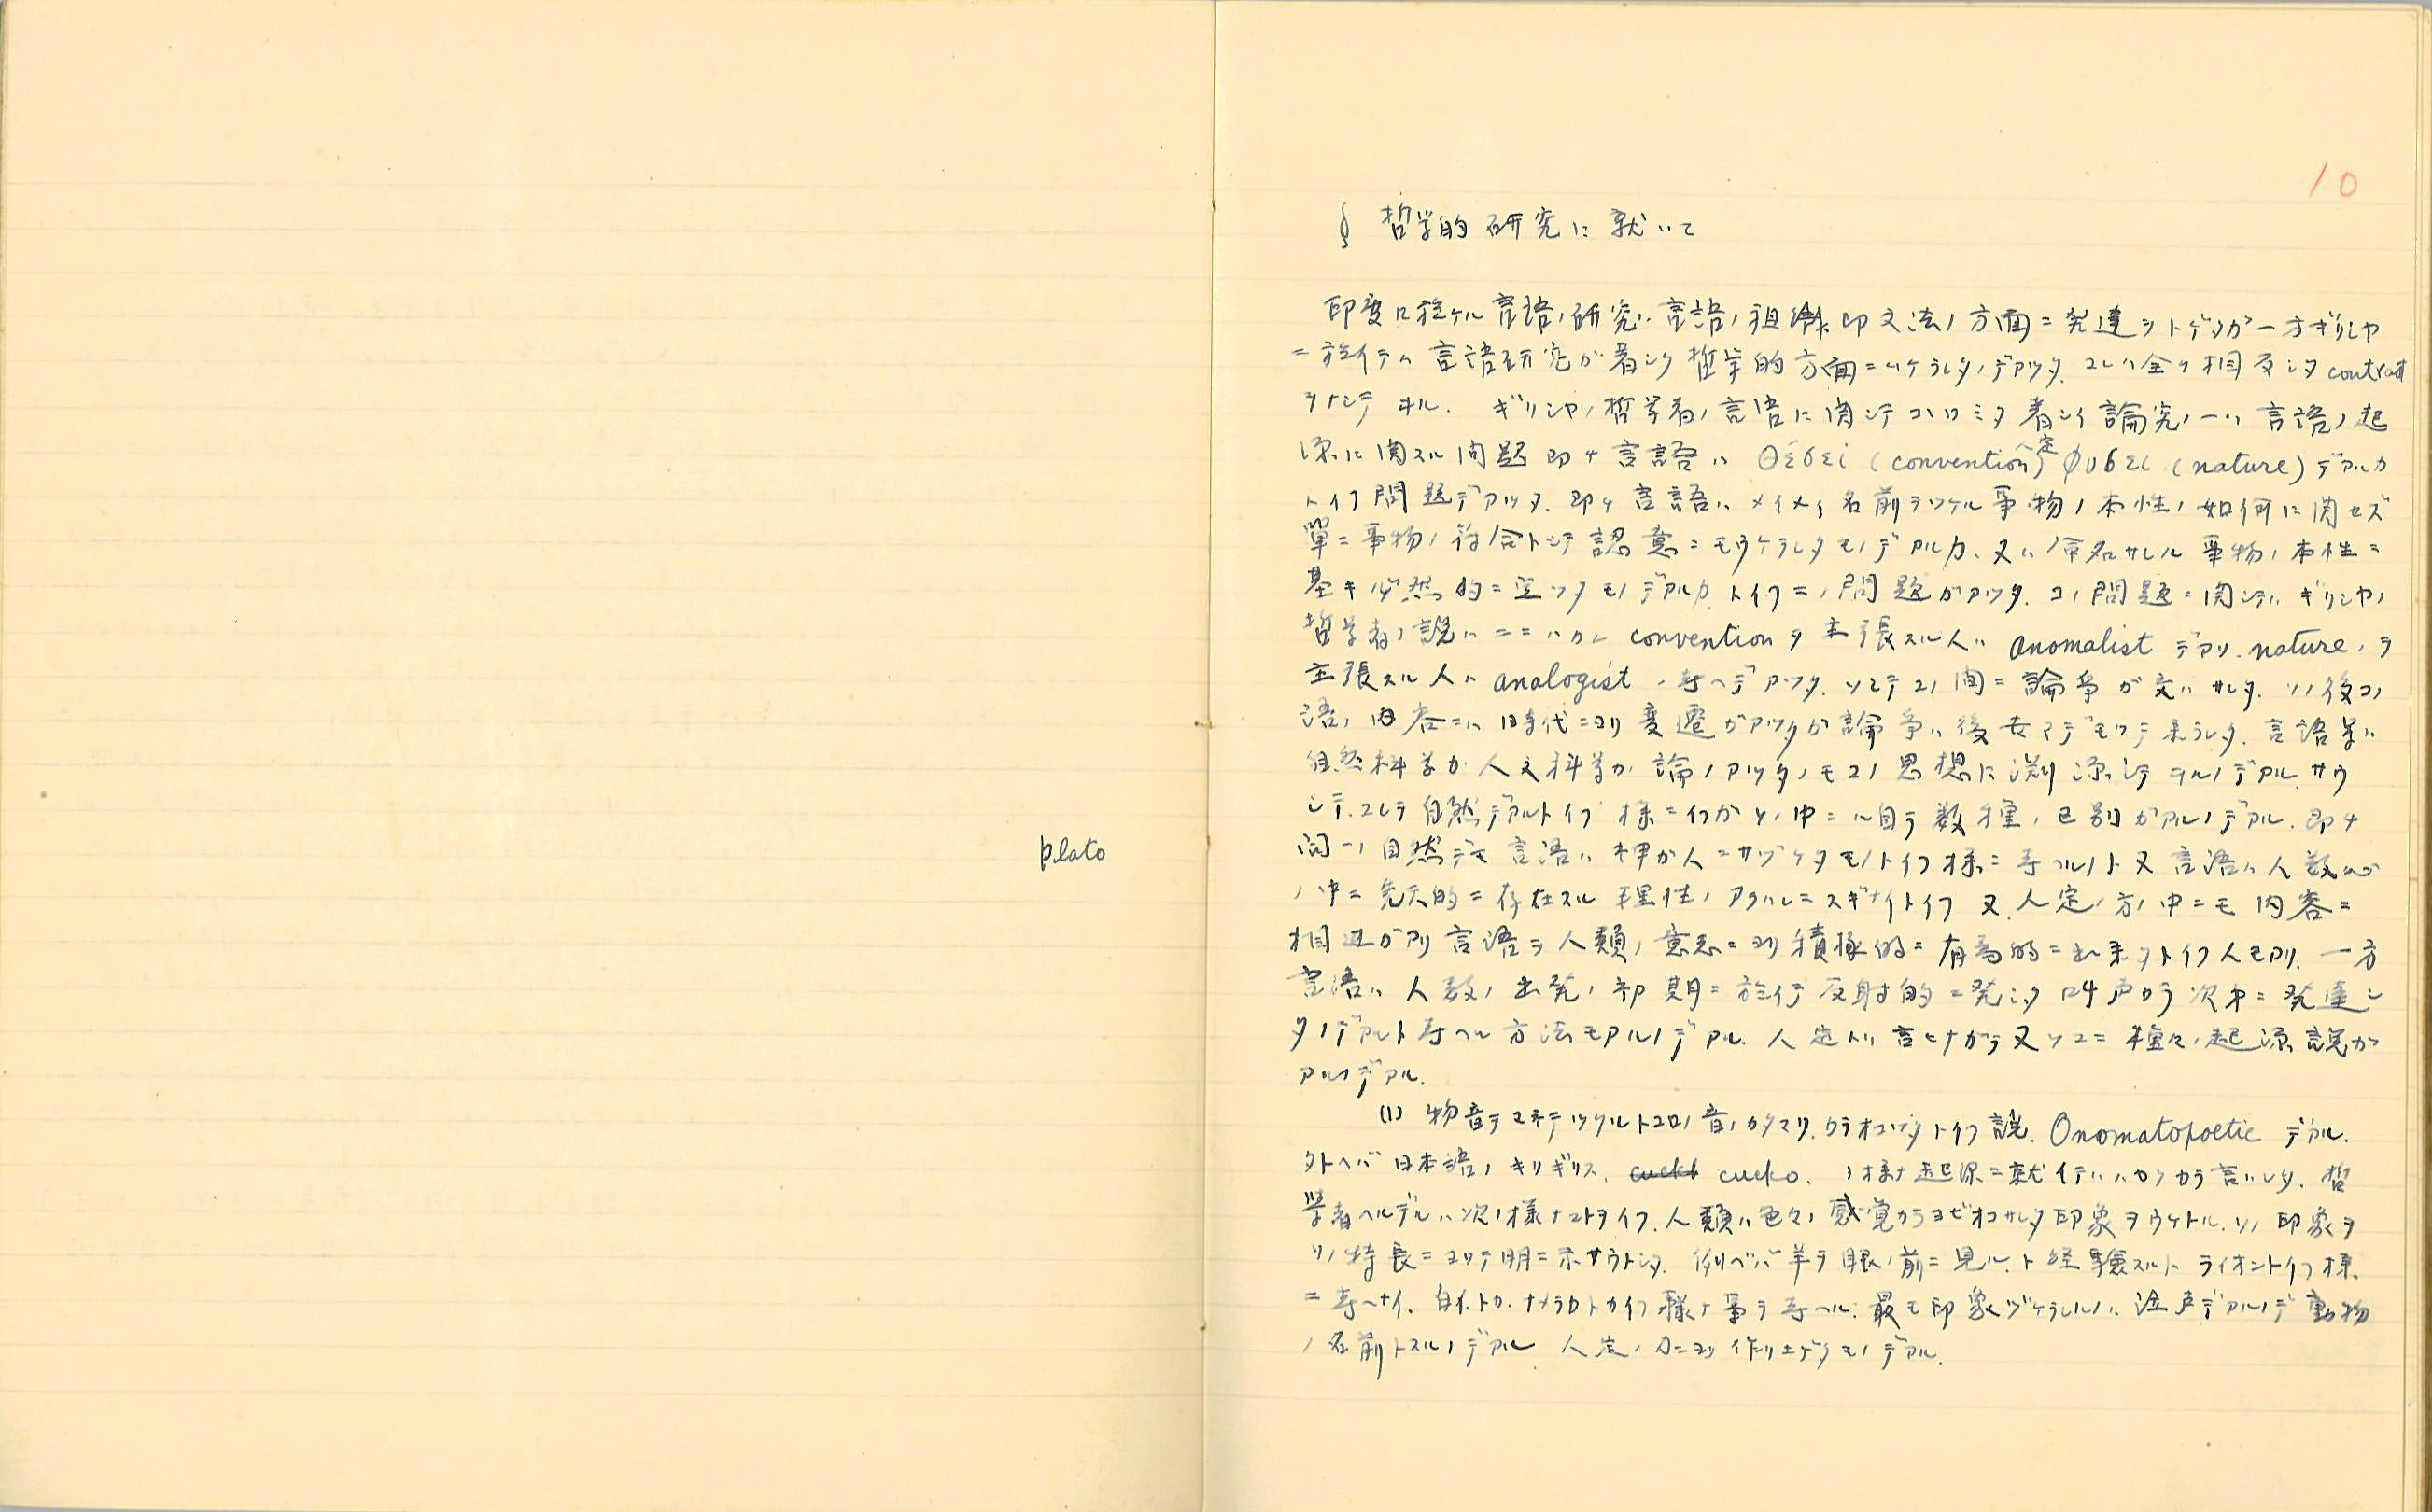 plato
10
§ 哲学的研究に就いて
印度ニ於ケル言語ノ研究ハ言語ノ組織即文法ノ方面ニ発達ヲトゲタガ一方ギリシヤ
ニ於イテハ言語研究ガ著シク哲学的方面ニムケラレタノデアツタ. コレハ全ク相反シタ contrast
ヲナシテヰル. ギリシヤノ哲学者ノ言語ニ関シテコヽロミタ著シイ論究ノ一ハ言語ノ起
源ニ関スル問題即チ言語ハ θέσει (convention) 人定 φύσει (nature) デアルカ
トイフ問題デアツタ. 即チ言語ハメイメイ名前ヲツケル事物ノ本性ノ如何ニ関セズ
單ニ事物ノ符合トシテ認意ニモウケラレタモノデアルカ、又ハ命名サレル事物ノ本性ニ
基キ必然的ニ定ツタモノデアルカトイフ二ノ問題ガアツタ. コノ問題ニ関シテハギリシヤノ
哲学者ノ説ハ二ニハカレ convention ヲ主張スル人ハ anomalist デアリ. nature ヲ
主張スル人ハ analogist ノ考ヘデアツタ. ソシテコノ間ニ論争ガ交ハサレタ. ソノ後コノ
語ノ内容ニハ時代ニヨリ変遷ガアツタガ論争ハ後世マデモツテ来ラレタ. 言語学ハ
自然科学カ人文科学カノ論ノアツタノモコノ思想ニ淵源シテヰルノデアル. サウ
シテ.コレラ自然デアルトイフ様ニイフガソノ中ニハ自ラ数種ノ区別ガアルノデアル. 即チ
同一ノ自然デモ言語ハ神ガ人ニサヅケタモノトイフ様ニ考ヘルノト又言語ハ人類ノ心
ノ中ニ先天的ニ存在スル理性ノアラハレニスギナイトイフ又人定ノ方ノ中ニモ内容ニ
相違ガアリ言語ヲ人類ノ意志ニヨリ積極的ニ有為的ニ出来タトイフ人モアリ. 一方
言語ハ人類ノ出発ノ初期ニ於イテ反射的ニ発シタ叫声カラ次第ニ発達シ
タノデアルト考ヘル方法モアルノデアル. 人定トハ言ヒナガラ又ソコニ種々ノ起源説ガ
アルノデアル.
(1) 物音ヲマネテツケルトコロノ音ノカタマリ.カラオコツタトイフ説. Onomatopoetic デアル.
タトヘバ日本語ノキリギリス. cucko. ノ様ナ起源ニ就イテハハヤクカラ言ハレタ. 哲
学者ヘルデルハ次ノ様ナコトヲイフ. 人類ハ色々ノ感覚カラヨビオコサレタ印象ヲウケトル. ソノ印象ヲ
ソノ特長ニヨツテ明ニ示サウトシタ. 例ヘバ羊ヲ眼ノ前ニ見ル.ト経験スルトライオントイフ様
ニ考ヘナイ. 白イトカ.ナメラカトカイフ様ナ事ヲ考ヘル. 最モ印象ヅケラレルノハ泣声デアルノデ動物
ノ名前トスルノデアル. 人定ノ力ニヨリ作リ上ゲタモノデアル.